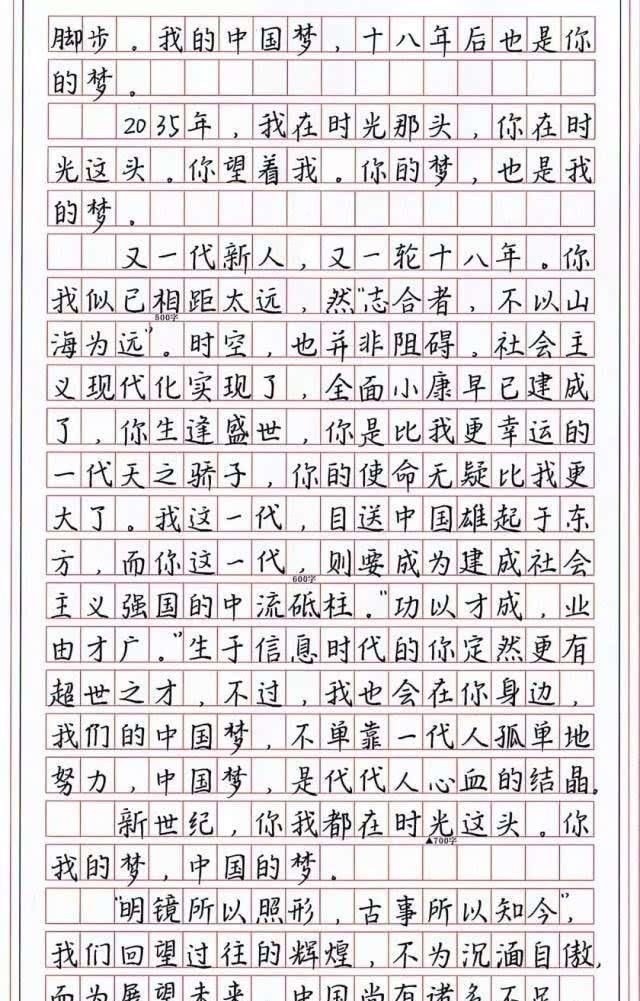 脚步。我的中国梦，十八年后也是你
的梦。
2035年，我在时光那头，你在时
光这头。你望着我。你的梦，也是我
的梦。
又一代新人，又一轮十八年。你
我似已相距太远，然“志合者，不以山
500字
海为远”。时空，也并非阻碍。社会主
义现代化实现了，全面小康早已建成
了，你生逢盛世，你是比我更幸运的
一代天之骄子，你的使命无疑比我更
大了。我这一代，目送中国雄起于东
方，而你这一代，则要成为建成社会
600字
主义强国的中流砥柱。“功以才成，业
由才广。”生于信息时代的你定然更有
超世之才，不过，我也会在你身边，
我们的中国梦，不单靠一代人孤单地
努力，中国梦，是代代人心血的结晶。
新世纪，你我都在时光这头。你
▲700字
我的梦，中国的梦。
“明镜所以照形，古事所以知今”，
我们回望过往的辉煌，不为沉湎自傲，
而为展望未来，中国尚有诸多不足